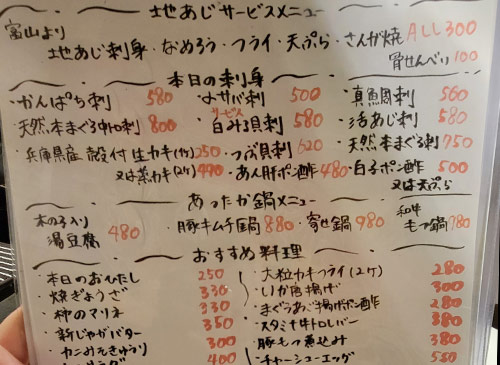 地あじサービスメニュー
富山より
地あじ刺身・なめろう・フライ・天ぷら・さんが焼 ALL300
骨せんべい 100
本日の刺身
・かんぱち刺 580
・〆サバ刺 500
・真鯛刺 560
・天然本まぐろ中トロ刺 800
サービス
・白みる貝刺 580
・活あじ刺 580
・兵庫県産 殻付生カキ(1ケ) 250
・つぶ貝刺 620
・天然本まぐろ刺 750
又は蒸カキ(2ケ) 490
・あん肝ポン酢 480
・白子ポン酢 500
又は天ぷら
あったか鍋メニュー
・木の子入り湯豆腐 480
・豚キムチ鍋 880
・寄せ鍋 980
・和牛もつ鍋 980
おすすめ料理
・本日のおひたし 250
・焼ぎょうざ 330
・柿のマリネ 330
・新じゃがバター 350
・カニみそきゅうり 300
400
・大粒カキフライ(2ケ) 280
・いか唐揚げ 300
・まぐろあご揚げポン酢 280
・スタミナ牛トロレバー 380
・豚もつ煮込み 380
・チャーシューエッグ 550